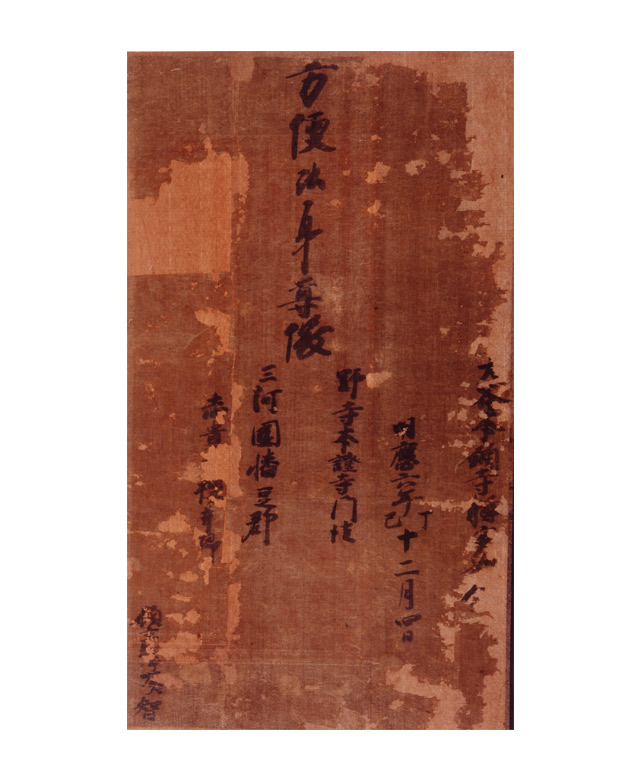 方便法身尊像
大谷本願寺釋實如
明應六年丁巳十二月四日
野寺本證寺門徒
三河國幡豆郡
願主釋 智